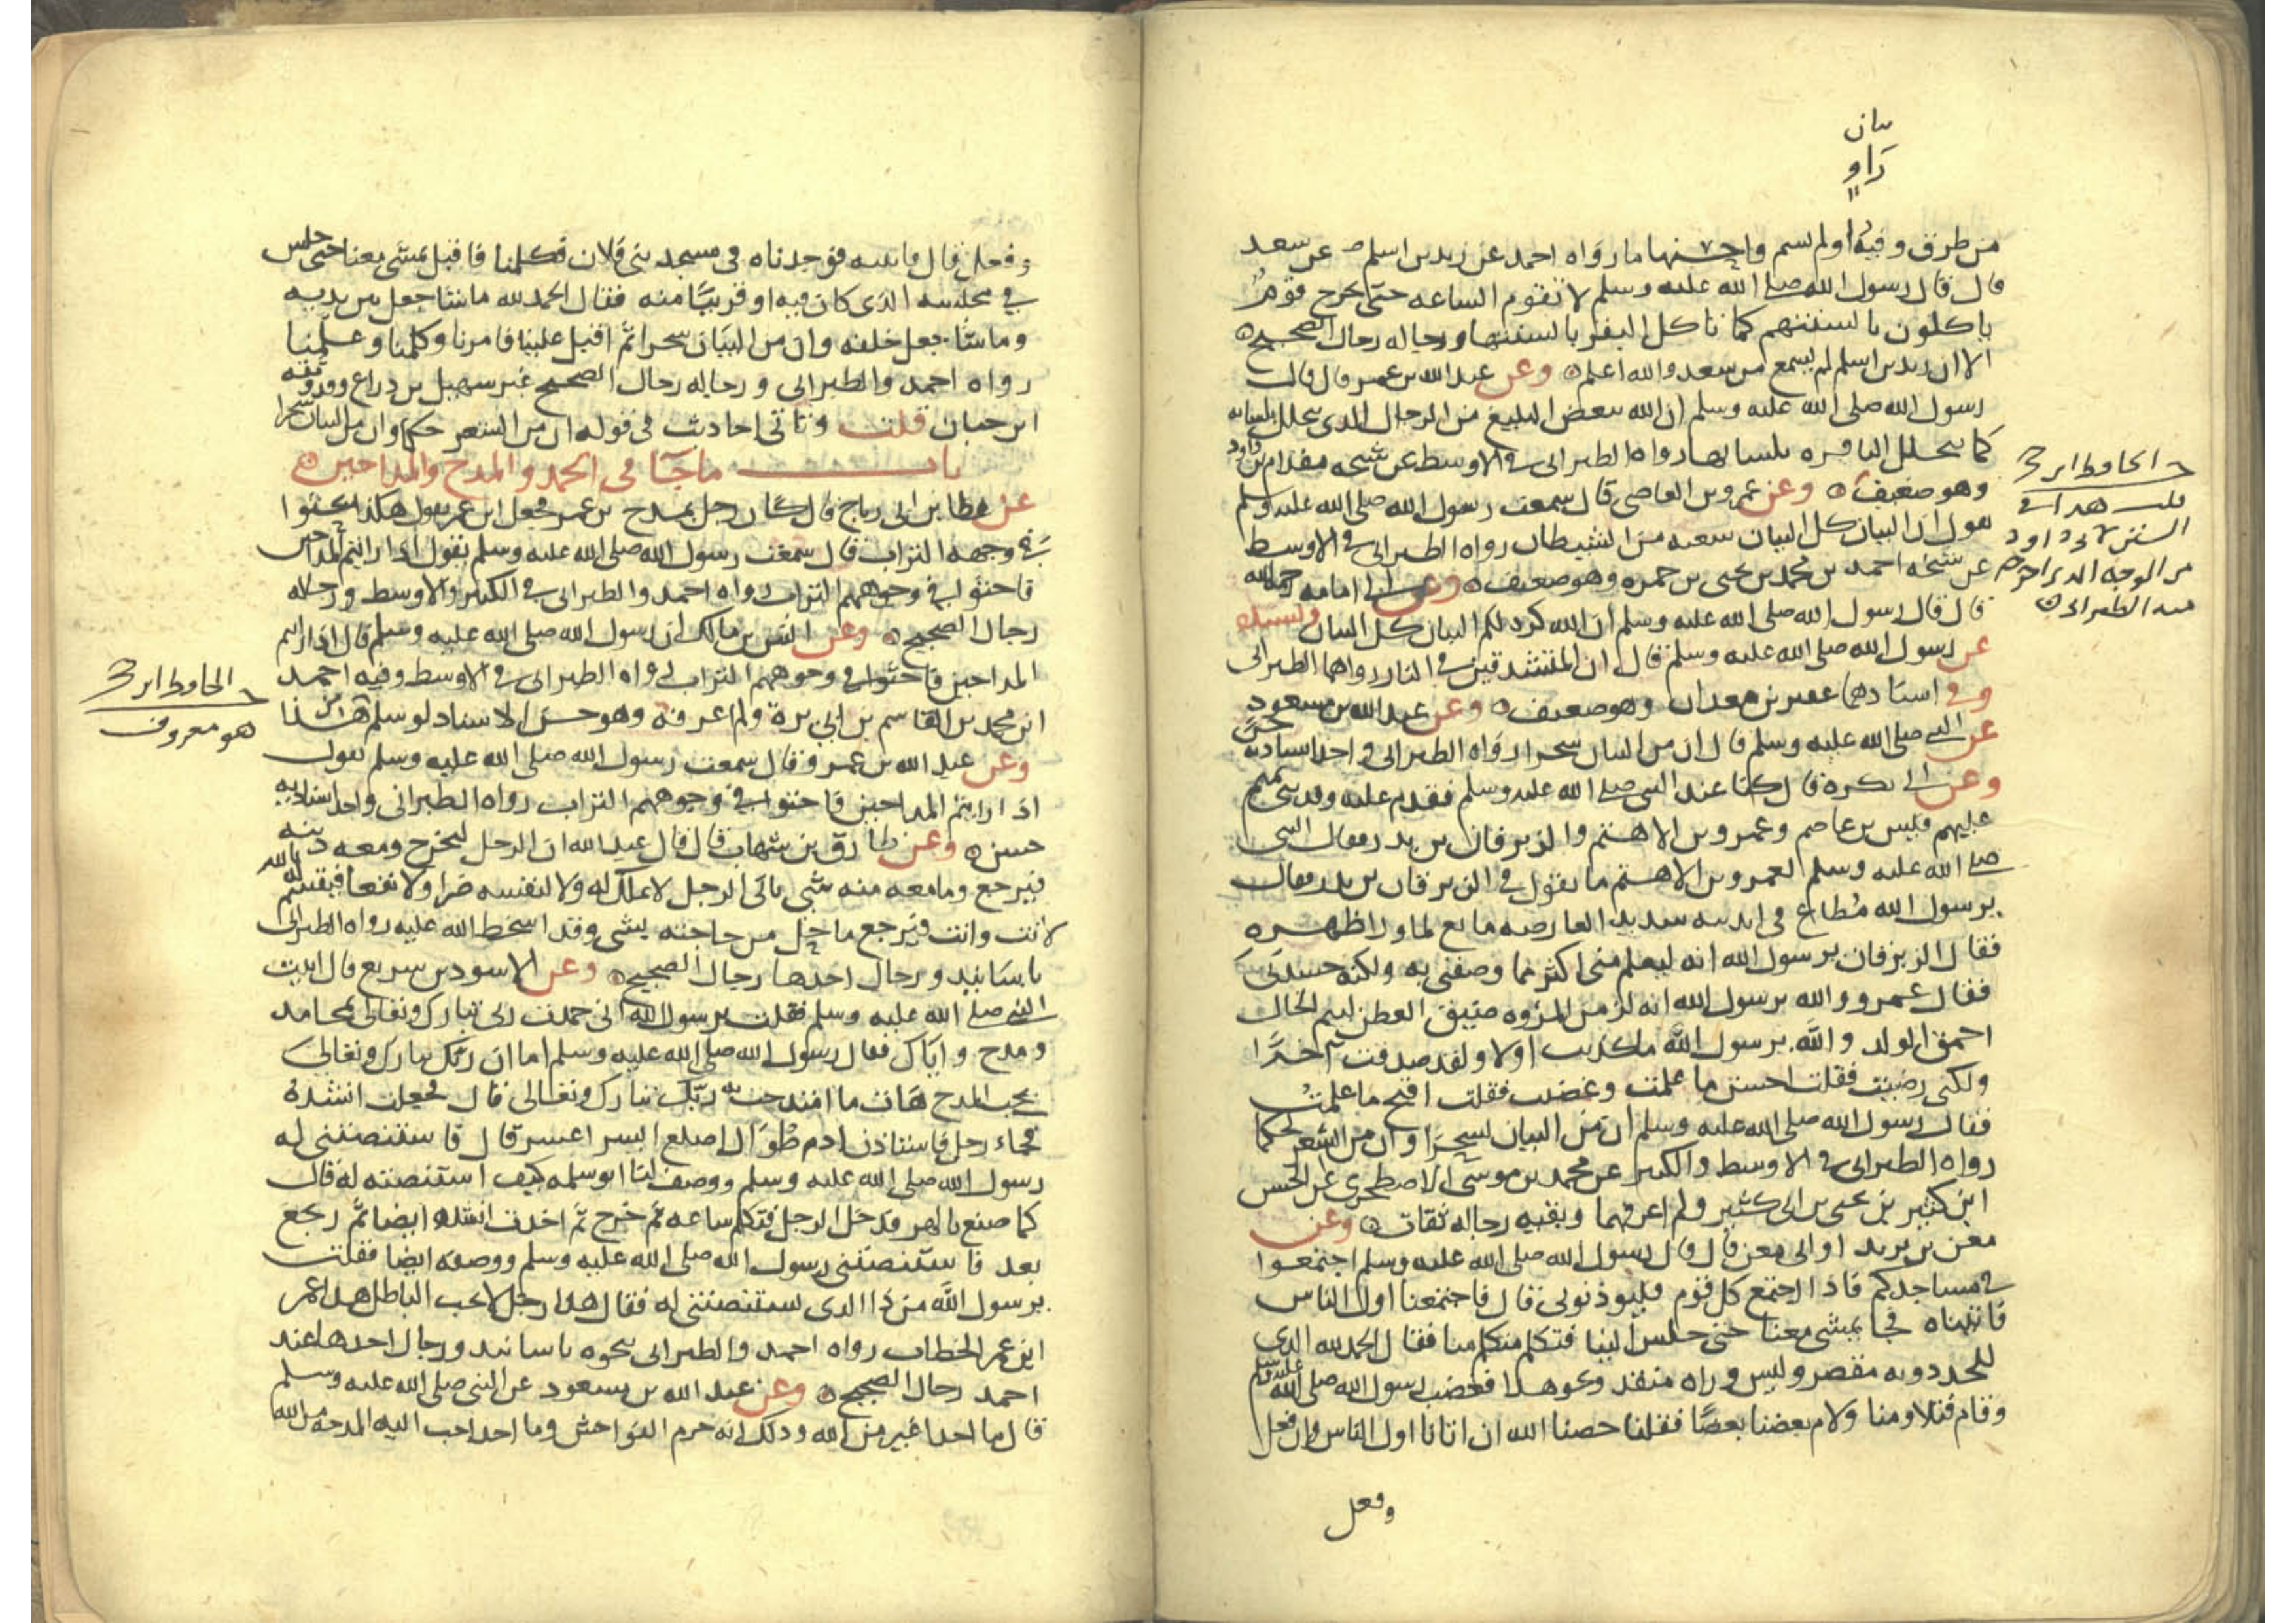 بيان
راو
من طرق وفيه راو لم يسم واحسنها ما رواه احمد عن زيد بن اسلم عن سعد
قال قال رسول الله صلى الله عليه وسلم لا تقوم الساعه حتى يخرج قوم
ياكلون بالسنتهم كما تاكل البقر بالسنتها ورجاله رجال الصحيح
الا ان زيد بن اسلم لم يسمع من سعد والله اعلم وعن عبد الله بن عمر قال قال
رسول الله صلى الله عليه وسلم ان الله يبغض البليغ من الرجال الذي يتخلل بلسانه
كما يتخلل الباقره بلسانها رواه الطبراني في الاوسط عن شيخه مقدام بن داود
وهو ضعيف وعن عمرو بن العاصي قال سمعت رسول الله صلى الله عليه وسلم
يقول ان البيان كل البيان شعبه من الشيطان رواه الطبراني في الاوسط
عن شيخه احمد بن محمد بن يحيى بن حمزه وهو ضعيف وعن ابي امامه رحمه الله
قال قال رسول الله صلى الله عليه وسلم ان الله كره لكم البيان كل البيان وبسنده
عن رسول الله صلى الله عليه وسلم قال ان المتشدقين في النار رواهما الطبراني
وفي اسنادهما عفير بن معدان وهو ضعيف وعن عبد الله بن مسعود
عن النبي صلى الله عليه وسلم قال ان من البيان سحرا رواه الطبراني واحد اسناديه حسن
وعن ابي بكرة قال كنا عند النبي صلى الله عليه وسلم فقدم عليه وفد بني تميم
عليهم قيس بن عاصم وعمرو بن الاهتم والزبرقان بن بدر فقال النبي
صلى الله عليه وسلم لعمرو بن الاهتم ما تقول في الزبرقان بن بدر فقال
يرسول الله مطاع في انديته شديد العارضه مانع لما وراظهره
فقال الزبرقان يرسول الله انه ليعلم مني اكثر مما وصفني به ولكنه حسدني
فقال عمرو والله يرسول الله انه لزمن المروه ضيق العطن لئيم الخال
احمق الولد والله يرسول الله ماكذبت اولا ولقد صدقت اخرا
ولكني رضيت فقلت احسن ما علمت وغضبت فقلت اقبح ما علمت
فقال رسول الله صلى الله عليه وسلم ان من البيان لسحرا وان من الشعر لحكما
رواه الطبراني في الاوسط والكبير عن محمد بن موسى الاصطخري عن الحسن
ابن كثير بن يحيى بن ابي كثير ولم اعرفهما وبقيه رجاله ثقات وعن
معن بن يزيد او ابي معن قال قال رسول الله صلى الله عليه وسلم اجتمعوا
في مساجدكم فاذا اجتمع كل قوم فليوذنوني قال فاجتمعنا اول الناس
فاتيناه فجا يمشي معنا حتى جلس الينا فتكلم متكلم منا فقال الحمد لله الذي
للحمد دونه مقصر وليس وراه منفذ ونحو هذا فغضب رسول الله صلى الله عليه وسلم
وقام فتلاومنا ولام بعضنا بعضا فقلنا خصنا الله ان اتانا اول الناس وان فعل
وفعل
ح الحافظ ابن حجر
قلت هذا في
السنن لابي داود
من الوجه الذي اخرجه
منه الطبراني
وفعل قال فاتيته فوجدناه في مسجد بني فلان فكلمنا فاقبل يمشي معنا حتى جلس
في مجلسه الذي كان فيه او قريبا منه فقال الحمد لله ما شا جعل بين يديه
وما شا جعل خلفه وان من البيان سحرا ثم اقبل علينا فامرنا وكلمنا وعلمنا
رواه احمد والطبراني ورجاله رجال الصحيح غير سهيل بن ذراع ووثقه
ابن حبان قلت وتاتي احاديث في قوله ان من الشعر حكم وان من البيان سحرا
باب ماجا في الحمد والمدح والمداحين
عن عطا بن ابي رباح قال كان رجل يمدح بن عمر فجعل ابن عمر يقول هكذا يحثوا
في وجهه التراب قال سمعت رسول الله صلى الله عليه وسلم يقول اذا رايتم المداحين
فاحثوا في وجوههم التراب رواه احمد والطبراني في الكبير والاوسط ورجاله
رجال الصحيح وعن انس بن مالك ان رسول الله صلى الله عليه وسلم قال اذا رايتم
المداحين فاحثوا في وجوههم التراب رواه الطبراني في الاوسط وفيه احمد
ابن محمد بن القاسم بن ابي بزة ولم اعرفه وهو حسن الاسناد لو سلم من هذا
وعن عبد الله بن عمرو قال سمعت رسول الله صلى الله عليه وسلم يقول
اذا رايتم المداحين فاحثوا في وجوههم التراب رواه الطبراني واحد اسناديه
حسن وعن طارق بن شهاب قال قال عبد الله ان الرجل ليخرج ومعه دينه
فيرجع وما معه منه شي ياتي الرجل لا يملك له ولا لنفسه ضرا ولا نفعا فيقسم له بالله
لانت وانت فيرجع ما حل من حاجته بشي وقد اسخط الله عليه رواه الطبراني
باسانيد ورجال احدها رجال الصحيح وعن الاسود بن سريع قال اتيت
النبي صلى الله عليه وسلم فقلت يرسول الله اني حمدت ربي تبارك وتعالى بمحامد
ومدح واياك فقال رسول الله صلى الله عليه وسلم اما ان ربك تبارك وتعالى
يحب المدح هات ما امتدحت به ربك تبارك وتعالى قال فجعلت انشده
فجاء رجل فاستاذن ادم طوال اصلع ايسر اعسر قال فاستنصتني له
رسول الله صلى الله عليه وسلم ووصف لنا ابو سلمه كيف استنصته له قال
كما صنع بالهر فدخل الرجل فتكلم ساعه ثم خرج ثم اخذت انشده ايضا ثم رجع
بعد فاستنصتني رسول الله صلى الله عليه وسلم ووصفه ايضا فقلت
يرسول الله من ذا الذي تستنصتني له فقال هذا رجل لا يحب الباطل هذا عمر
ابن عمر الخطاب رواه احمد والطبراني نحوه باسانيد ورجال احدها عند
احمد رجال الصحيح وعن عبد الله بن مسعود عن النبي صلى الله عليه وسلم
قال ما احد اغير من الله وذلك انه حرم الفواحش وما احد احب اليه المدحه من الله
ح الحافظ ابن حجر
هو معروف